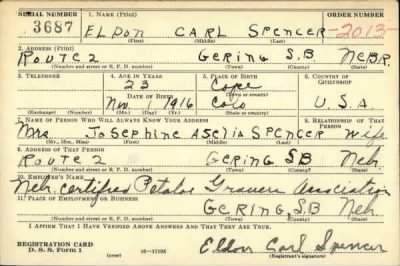 SERIAL NUMBER 1. NAME (Print) ORDER NUMBER
3687 ELDON CARL SPENCER -2013-
(First) (Middle) (Last)
2. ADDRESS (Print)
ROUTE 2 GERING S.B NEBR.
(Number and street or R. F. D. number) (Town) (County) (State)
3. TELEPHONE 4. AGE IN YEARS 5. PLACE OF BIRTH 6. COUNTRY OF CITIZENSHIP
23 Cope
DATE OF BIRTH (Town or county)
Nov. 1916 Colo U.S.A.
(Exchange) (Number) (Mo.) (Day) (Yr.) (State or country)
7. NAME OF PERSON WHO WILL ALWAYS KNOW YOUR ADDRESS 8. RELATIONSHIP OF THAT PERSON
Mrs JoSEPhine ASENIA SPENCER wife
(Mr., Mrs., Miss) (First) (Middle) (Last)
9. ADDRESS OF THAT PERSON
ROUTE 2 GERING SB Neb.
(Number and street or R. F. D. number) (Town) (County) (State)
10. EMPLOYER'S NAME
Neb. certified Potatoe Growers Association
11. PLACE OF EMPLOYMENT OR BUSINESS
GERING, S.B Neb.
(Number and street or R. F. D. number) (Town) (County) (State)
I AFFIRM THAT I HAVE VERIFIED ABOVE ANSWERS AND THAT THEY ARE TRUE.
REGISTRATION CARD
D. S. S. Form 1 Eldon Carl Spencer
(Registrant's signature)